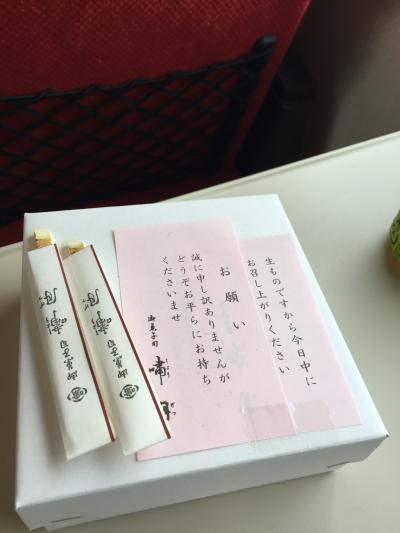 生ものですから今日中に
お召し上がりください
お願い
誠に申し訳ありませんが
どうぞお平らにお持ち
くださいませ
御菓子司 嘯月
御菓子司 嘯月
御菓子司 嘯月